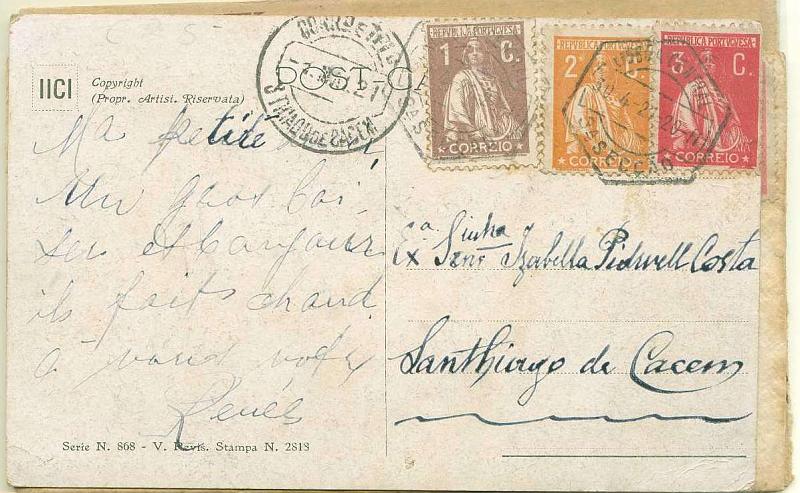 IICI
Copyright
(Propr. Artisi. Riservata)
POST-CA
REPVBLICA PORTVGVESA
1 C.
CORREIO
REPVBLICA PORTVGVESA
2 C.
CORREIO
REPVBLICA PORTVGVESA
3 C.
CORREIO
Ma petite
Un gros bai
ser et bonjour
ils faits chaud.
a votre
Renée
Exª Sinhª
Snrª Izabella Pidwell Costa
Santhiago de Cacem
Serie N. 868 - V. Revis. Stampa N. 2818